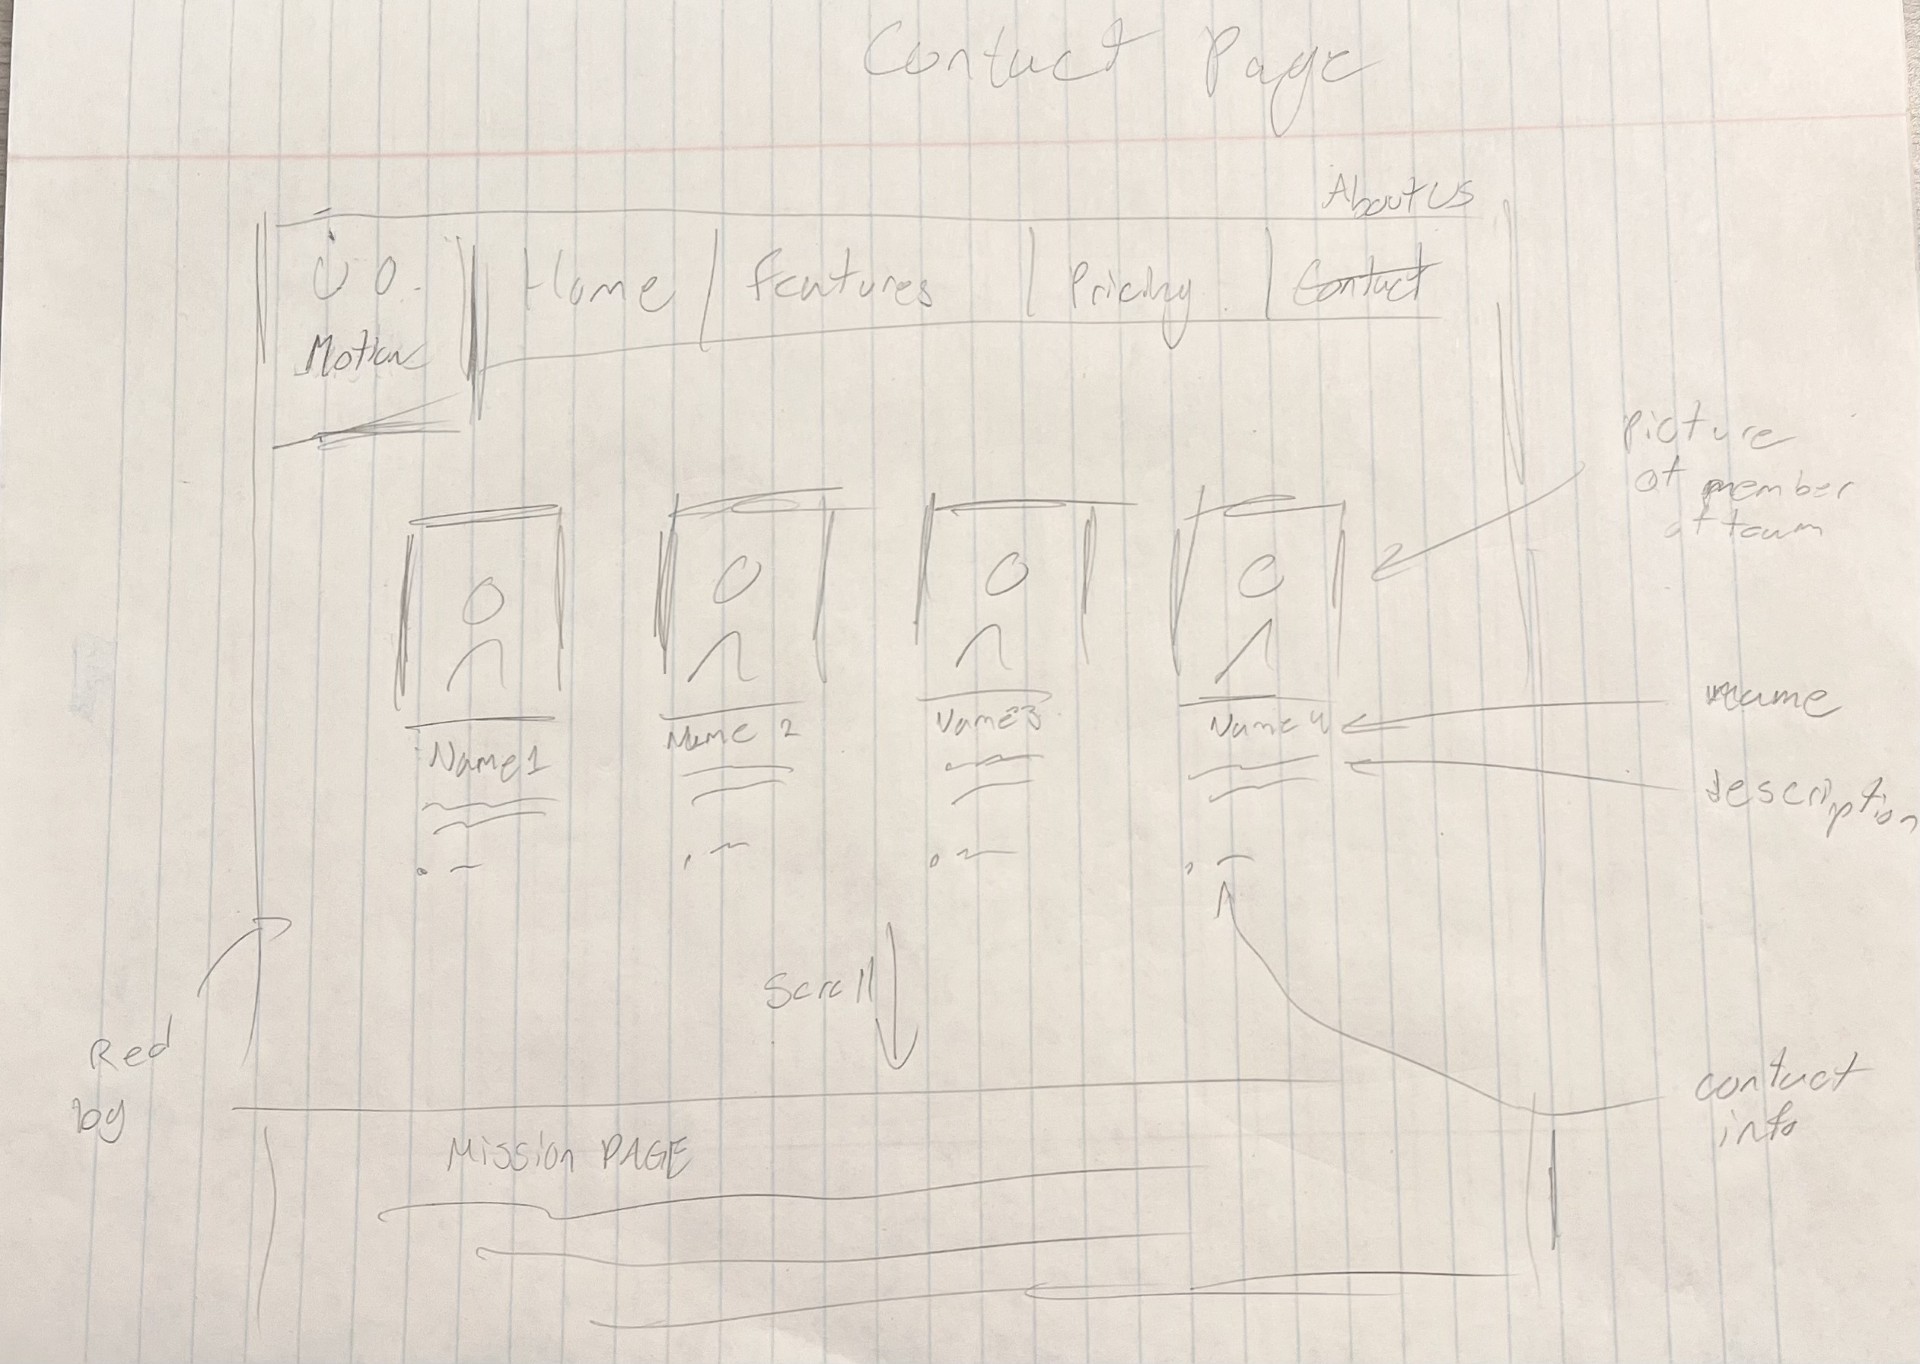 Contact Page
About Us
Home
Features
Pricing
Contact
Motion
picture
of member
of team
Name1
Name 2
Name3
Name 4
name
description
Scroll
Red
bg
contact
info
Mission PAGE